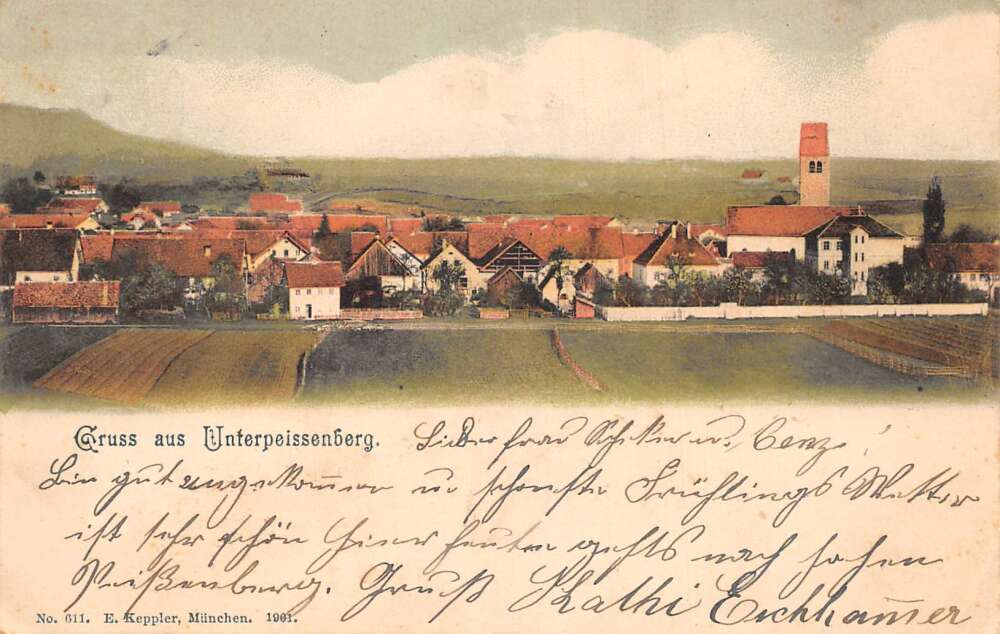 Gruss aus Unterpeissenberg.
Lieber frau u. Cenz!
Bin gut angekommen u. schönste Frühlings Wetter
ist sehr schön hier heute gehts nach hohen
Peißenberg. Gruß Kathi Eichhammer
No. 611. E. Keppler, München. 1901.